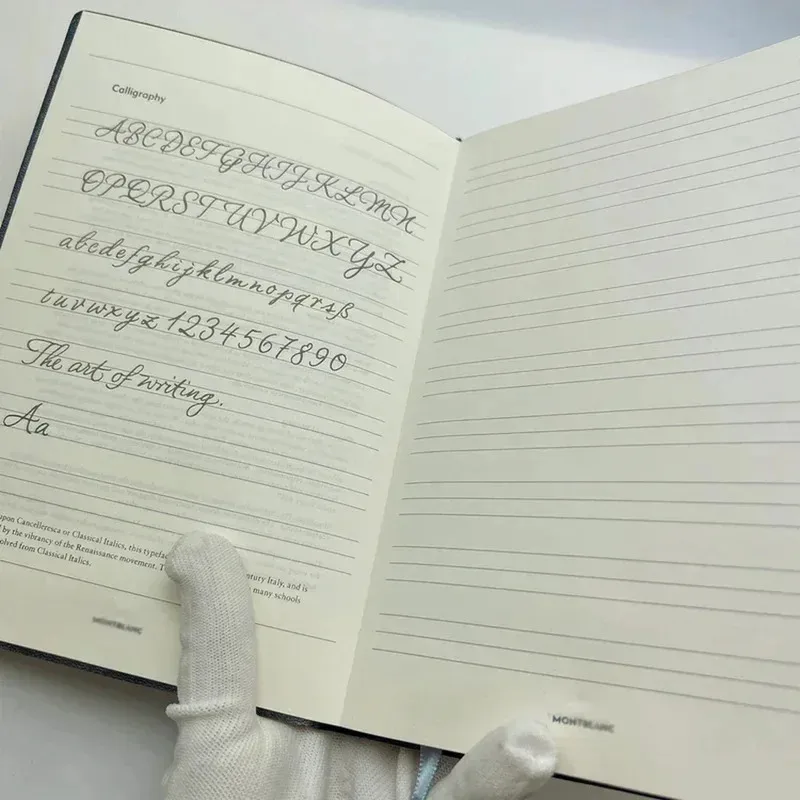 Calligraphy
ABCDEFGHIJKLMN
OPQRSTUVWXYZ
abcdefghijklmnopqrsß
tuvwxyz 1234567890
The art of writing.
Aa
upon Cancelleresca or Classical Italics, this typefa
by the vibrancy of the Renaissance movement. T ntury Italy, and is
olved from Classical Italics. many schools
MONTBLANC
MONTBLANC